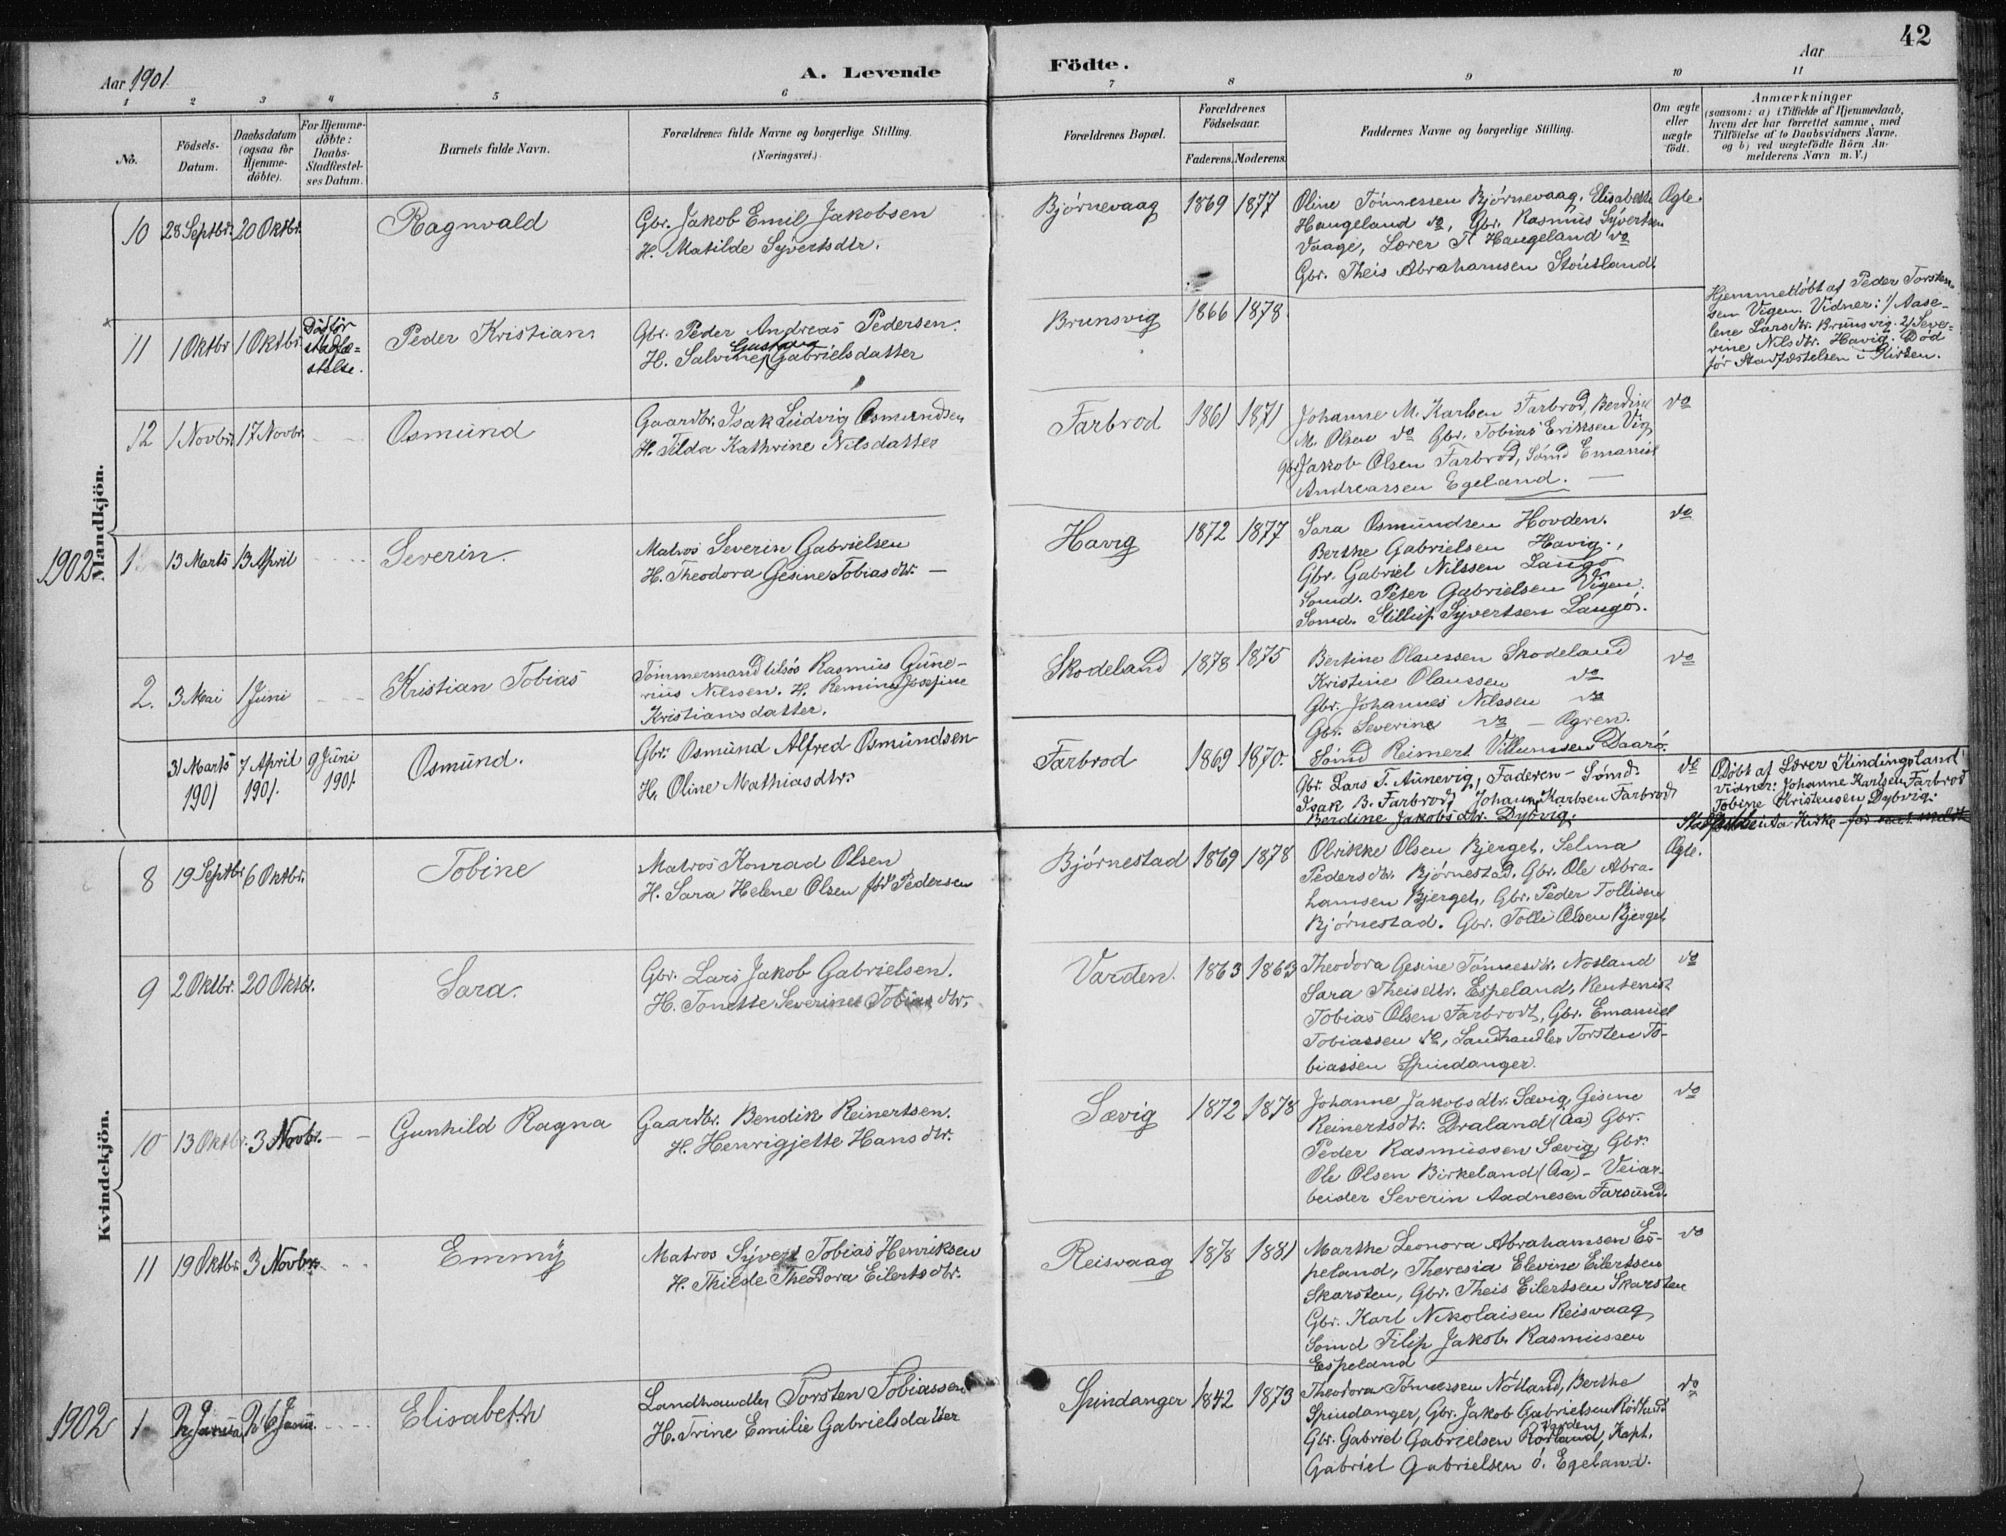 42
Aar 1901.
A. Levende Födte.
Aar
1 2 3 4 5 6 7 8 9 10 11
No.
Födsels-Datum.
Daabsdatum (ogsaa för Hjemme-döbte).
For Hjemme-döbte: Daabs-Stadfæstel-ses Datum.
Barnets fulde Navn.
Forældrenes fulde Navne og borgerlige Stilling.
(Næringsvei.)
Forældrenes Bopæl.
Forældrenes Födselsaar.
Faderens. Moderens.
Faddernes Navne og borgerlige Stilling.
Om ægte eller uægte födt.
Anmærkninger
(saasom: a) i Tilfælde af Hjemmedaab,
hvem der har forrettet samme, med
Tilföielse af to Daabsvidners Navne,
og b) ved uægtefödte Börn An-
melderens Navn m. V.)
Mandkjön.
10 28 Septbr. 20 Oktbr. Ragnvald
Gbr. Jakob Emil Jakobsen
H. Matilde Syvertsdtr.
Bjørnevaag 1869 1877
Oline Tönnessen Bjørnevaag, Elisabeth
Haugeland do, Gbr. Rasmus Syvertsen
Vaage, Lærer T. Haugeland do
Gbr. Theis Abrahamsen Stóusland.
Ægte.
11 1 Oktbr 1 Oktbr. Död för stadfæ-stelse. Peder Kristian
Gbr. Peder Andreas Pedersen.
H. Salvine Gustava Gabrielsdatter
Brunsvig 1866 1878
Hjemmedöbt af Peder Torsten-
sen Vigen. Vidner: 1/ Aase-
lene Larsdtr. Brunsvig. 2/ Seve-
rine Nilsdtr. Havig. Död
för Stadfæstelsen i Kirken.
12 1 Novbr. 17 Novbr. Osmund
Gaardbr. Isak Ludvig Osmundsen
H. Tilda Kathrine Nilsdatter
Farbrod 1861 1871
Johanne M. Karlsen Farbrod, Berdine
M. Olsen do Gbr. Tobias Eriksen Vig
Gbr. Jakob Olsen Farbrod, Sömd Emanuel
Andreassen Egeland.
do
1902
1 13 Marts 13 April Severin.
Matros Severin Gabrielsen
H. Theodora Gesine Tobiasdtr.
Havig 1872 1877
Sara Osmundsen Hovden.
Berthe Gabrielsen Havig.,
Gbr. Gabriel Nilssen Langö
Sömd. Peter Gabrielsen Vigen.
Sömd. Stilluf Syvertsen Langö.
do
2. 3 Mai 1 Juni Kristian Tobias
Tömmermand tilsös Rasmus Gune-
rius Nilssen. H. Remine Josefine
Kristiansdatter.
Skodeland 1878 1875
Bertine Olaussen Skodeland
Kristine Olaussen do
Gbr. Johannes Nilssen do
Gbr. Severine do - Ögren.
Sömd Reimert Villumsen Daarö.
do
31 Marts 1901 7 April 1901. 9 Juni 1901. Osmund.
Gbr. Osmund Alfred Osmundsen
H. Oline Mathiasdtr.
Farbrod 1869 1870.
Gbr. Lars T. Aunevig, Faderen - Sömd.
Isak B. Farbrod, Johanne Karlsen Farbrod
Berdine Jakobsdtr. Dybvig.
do
Döbt af Lærer Kindingsland
Vidner: Johanne Karlsen Farbrod
Tobine Kristensen Dybvig.
Kvindekjön.
8 19 Septbr. 6 Oktbr. Tobine
Matros Konrad Olsen
H. Sara Helene Olsen föd Pedersen
Bjørnestad 1869 1878
Olrikke Olsen Bjerget, Selma
Pedersdtr. Bjørnestad, Gbr. Ole Abra-
hamsen Bjerget, Gbr. Peder Tollisen
Bjørnestad. Gbr. Tolli Olsen Bjerget
Ægte.
9 2 Oktbr. 20 Oktbr. Sara.
Gbr. Lars Jakob Gabrielsen.
H. Tonette Severine Tobiasdtr.
Varden. 1863 1863
Theodora Gesine Tönnesdtr. Nosland
Sara Theisdtr. Espeland, Rentenist
Tobias Olsen Farbrodt, Gbr. Emanuel
Tobiassen do, Landhandler Torsten To-
biassen Spindanger.
do
10 13 Oktbr. 3 Novbr. Gunhild Ragna
Gaardbr. Bendik Reinertsen.
H. Henrigjette Hansdtr.
Sævig 1872 1878
Johanne Jakobsdtr. Sævig, Gesine
Reinertsdtr. Draland (Aa) Gbr.
Peder Rasmussen Sævig, Gbr.
Ole Olsen Birkeland (Aa) - Veiar-
beider Severin Aadnesen Farsund.
do
11 19 Oktbr. 3 Novbr. Emmy
Matros Syvert Tobias Henriksen
H. Thilde Theodora Eilertsdtr.
Reisvaag 1878 1881
Marthe Leonora Abrahamsen Es-
peland, Theresia Elevine Eilertsen
Skarsten, Gbr. Theis Eilertsen Skarsten
Gbr. Karl Nikolaisen Reisvaag
Sömd Filip Jakob Rasmussen
Espeland
do
1902
1 Elisabeth
Landhandler Torsten Tobiassen
H. Trine Emilie Gabrielsdatter
Spindanger 1842 1873
Theodora Tönnessen Nötland, Berthe
Spindanger, Gbr. Jakob Gabrielsen
Gbr. Gabriel Gabrielsen Varden, Kapt.
Gabriel Gabrielsen ö. Egeland.
do